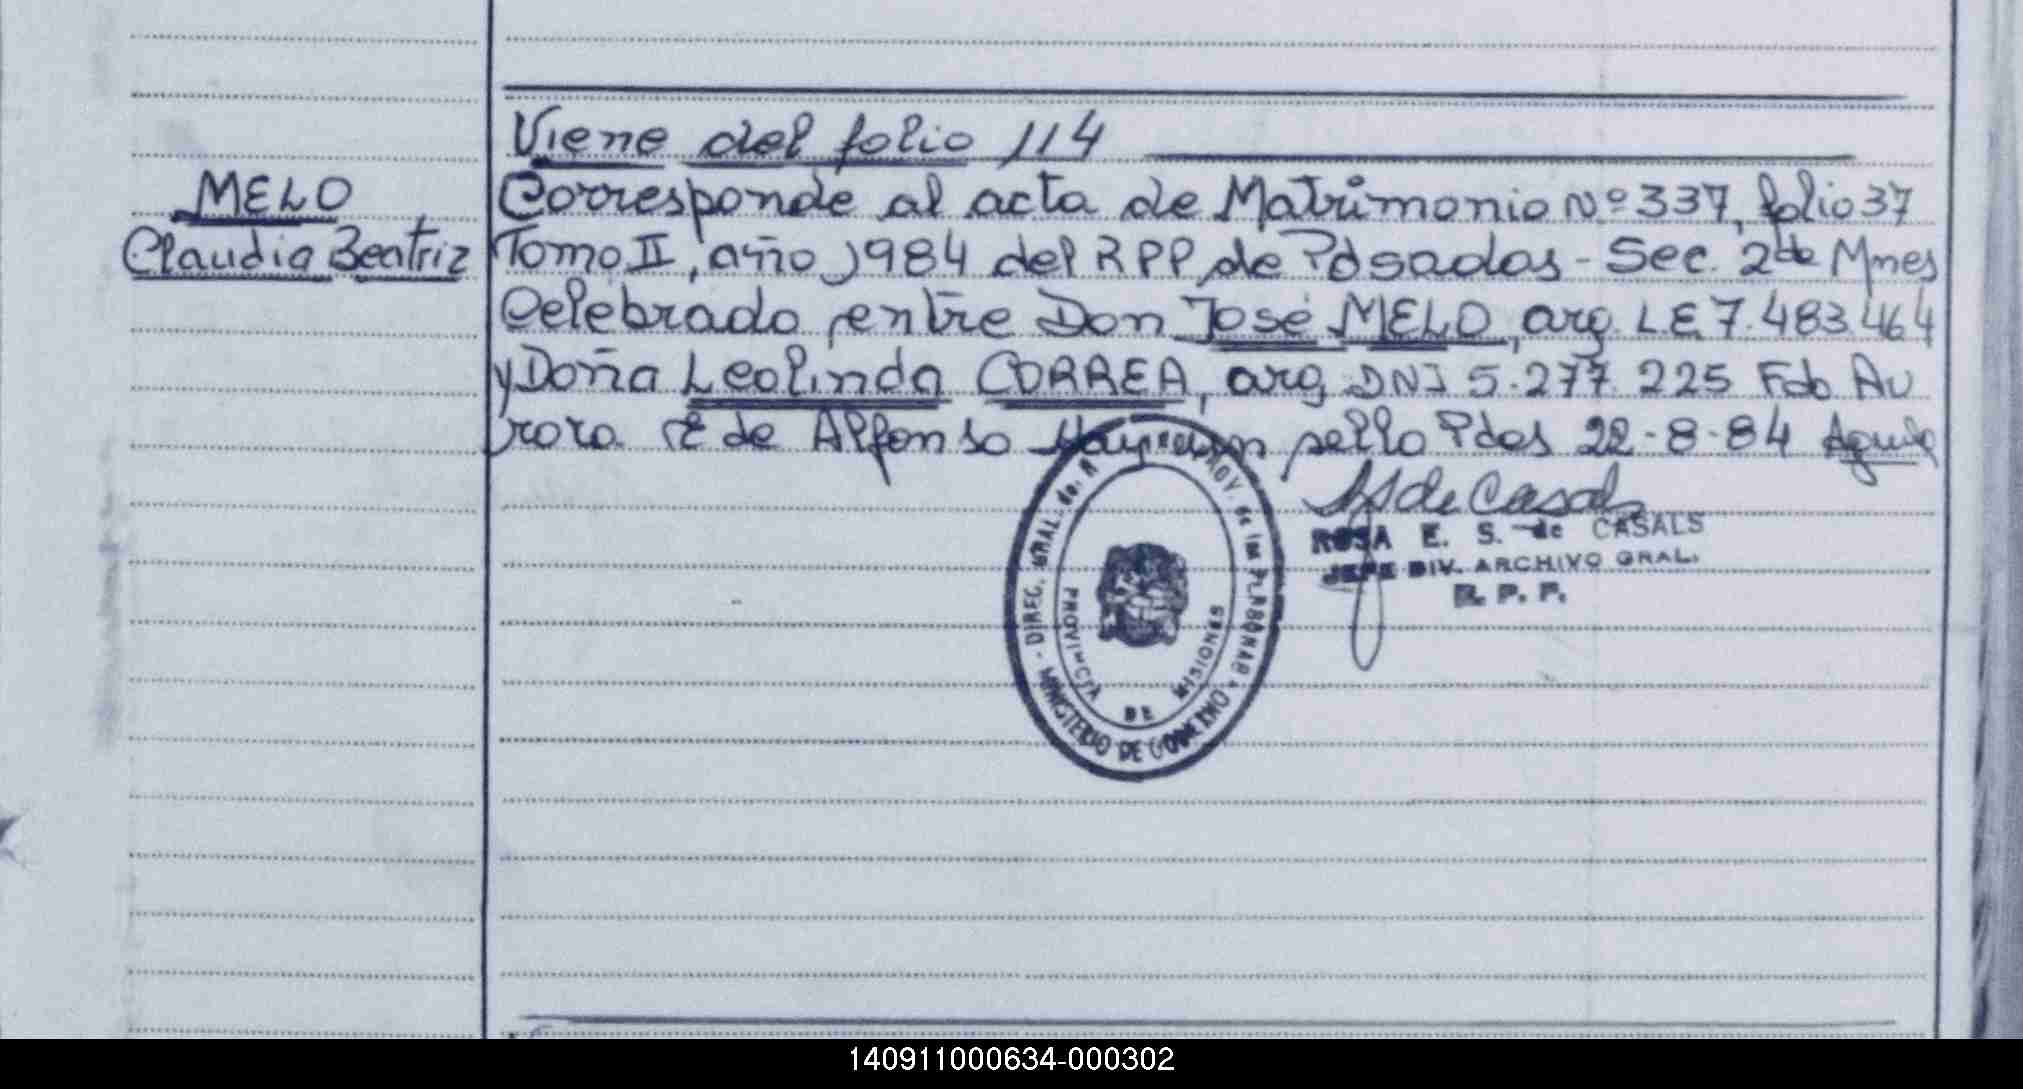 Viene del folio 114
MELO
Claudia Beatriz
Corresponde al acta de Matrimonio Nº 337, folio 37
Tomo II, año 1984 del RPP de Posadas - Sec. 2da Mnes
Celebrado entre Don José MELO, arg. L.E. 7.483.464
y Doña Leolinda CORREA, arg. DNI 5.277.225 Fdo Au
rora de Alfonso sello Pdas 22-8-84
de Casals
ROSA E. S. de CASALS
JEFE DIV. ARCHIVO GRAL.
R. P. P.
DIREC. GRAL. de. PROV. de las PERSONAS
MINISTERIO DE GOBIERNO
PROVINCIA DE MISIONES
140911000634-000302